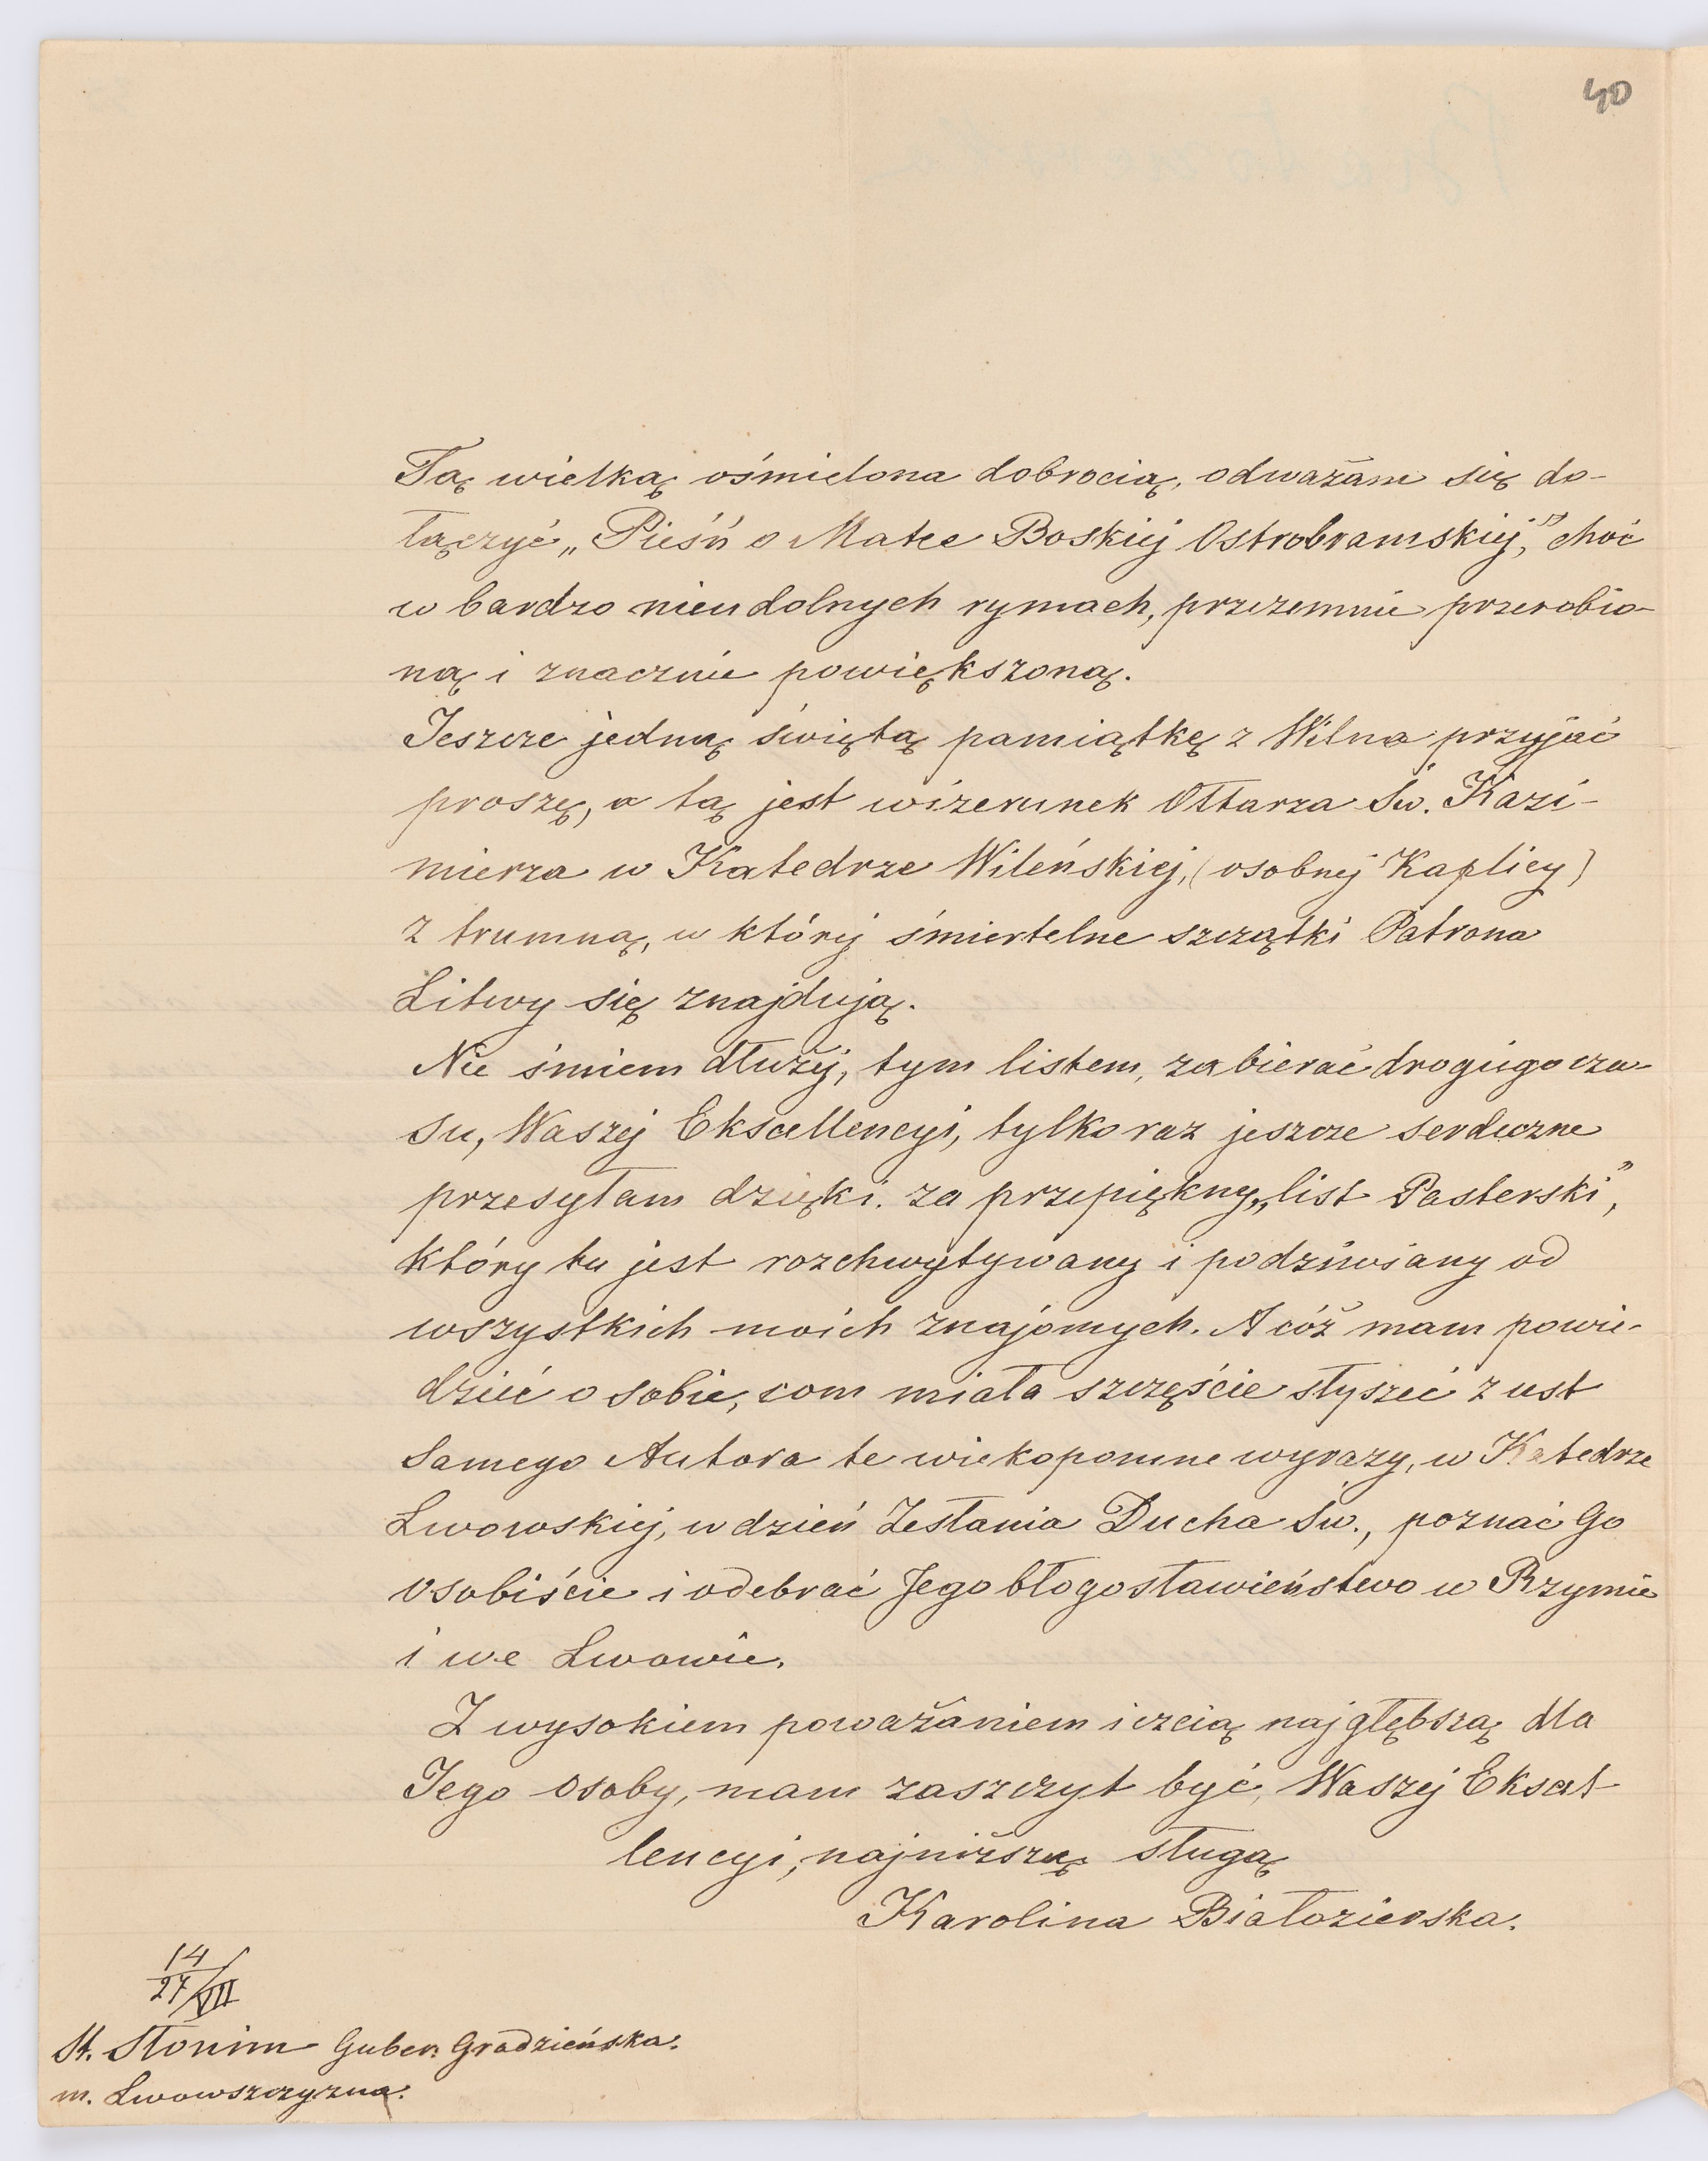 40
Tą wielką ośmielona dobrocią, odważam się do-
łączyć „Pieśń o Matce Boskiej Ostrobramskiej," choć
w bardzo nieudolnych rymach, przezemnie przerobio-
ną i znacznie powiększoną.
Jeszcze jedną świętą pamiątkę z Wilna przyjąć
proszę, a tą jest wizerunek Ołtarza Św. Kazi-
mierza w Katedrze Wileńskiej, (osobnej Kaplicy)
z trumną, w której śmiertelne szczątki Patrona
Litwy się znajdują.
Nie śmiem dłużej, tym listem, zabierać drogiego cza-
su, Waszej Ekscellencyi, tylko raz jeszcze serdeczne
przesyłam dzięki. za przepiękny „list Pasterski",
który tu jest rozchwytywany i podziwiany od
wszystkich moich znajomych. A cóż mam powie-
dzieć o sobie, com miała szczęście słyszeć z ust
Samego Autora te wiekopomne wyrazy, w Katedrze
Lwowskiej, w dzień Zesłania Ducha Św., poznać Go
osobiście i odebrać Jego błogosławieństwo w Rzymie
i we Lwowie.
Z wysokiem poważaniem i czcią najgłębszą dla
Jego osoby, mam zaszczyt być, Waszej Ekscel-
lencyi, najniższą sługą
Karolina Białozierska.
14
27/VII
St. Słonim Guber. Grodzieńska.
m. Lwowszczyzna.